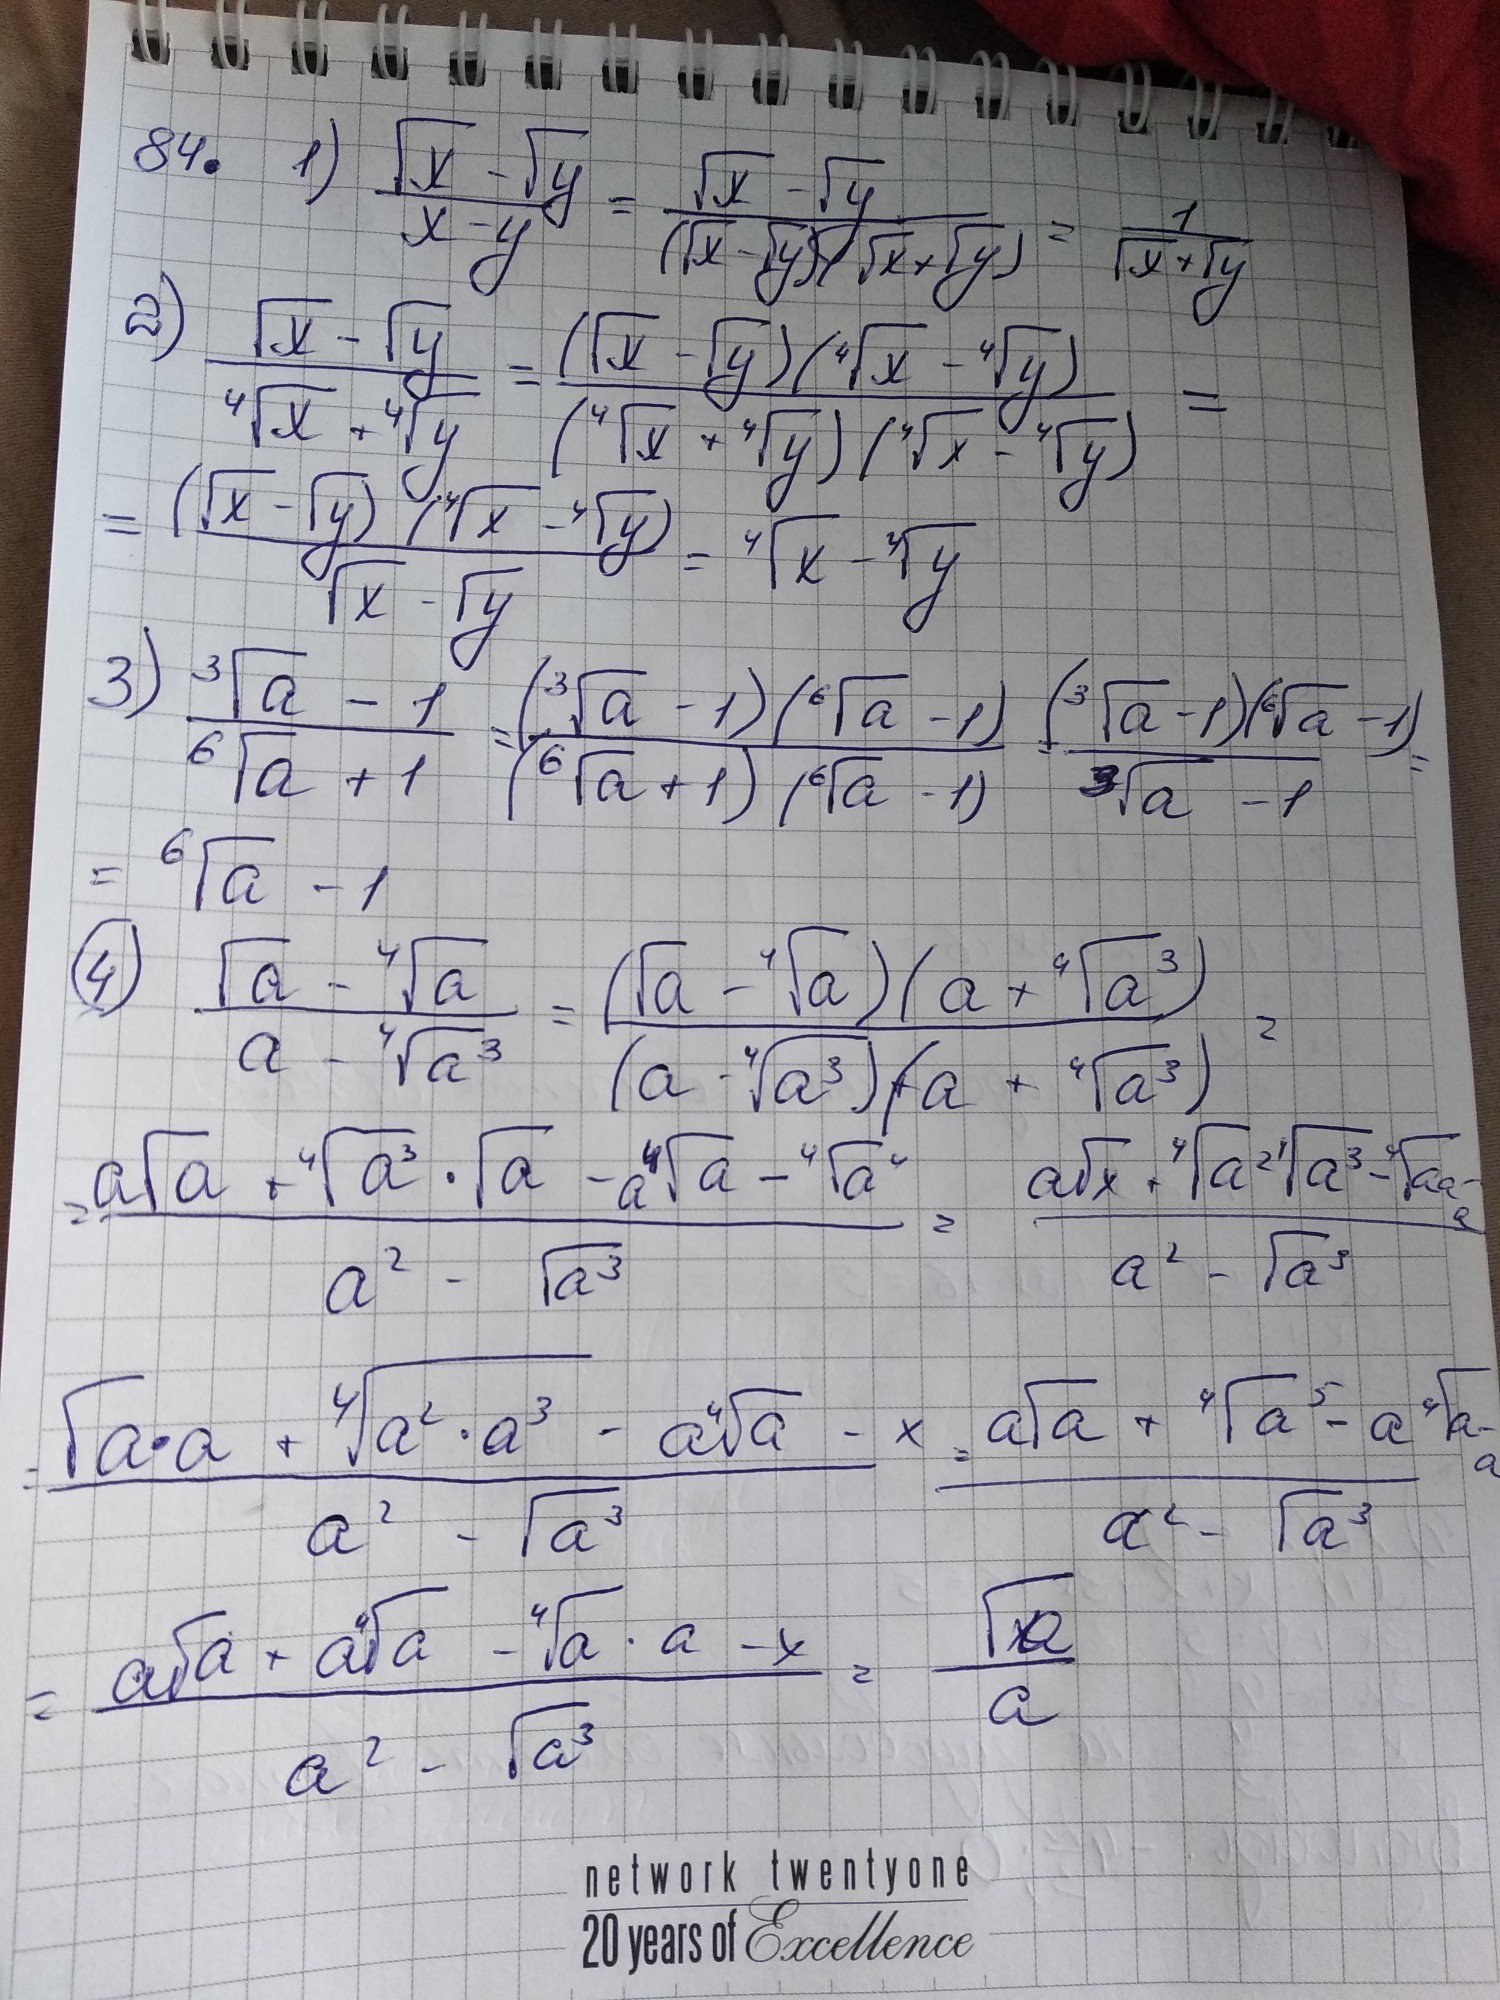 84. 1) (√x - √y)/(x - y) = (√x - √y)/((√x - √y)(√x + √y)) = 1/(√x + √y)
2) (√x - √y)/(⁴√x + ⁴√y) = ((√x - √y)(⁴√x - ⁴√y))/((⁴√x + ⁴√y)(⁴√x - ⁴√y)) =
= ((√x - √y)(⁴√x - ⁴√y))/(√x - √y) = ⁴√x - ⁴√y
3) (³√a - 1)/(⁶√a + 1) = ((³√a - 1)(⁶√a - 1))/((⁶√a + 1)(⁶√a - 1)) = ((³√a - 1)(⁶√a - 1))/(³√a - 1) =
= ⁶√a - 1
4) (√a - ⁴√a)/(a - ⁴√a³) = ((√a - ⁴√a)(a + ⁴√a³))/((a - ⁴√a³)(a + ⁴√a³)) =
= (a√a + ⁴√a³ · √a - a⁴√a - ⁴√a⁴)/(a² - √a³) = (a√x + ⁴√a² ⁴√a³ - ⁴√a a - a)/(a² - √a³)
= (√a·a + ⁴√(a² · a³) - a⁴√a - x)/(a² - √a³) = (a√a + ⁴√a⁵ - a⁴√a - a)/(a² - √a³)
= (a√a + a⁴√a - ⁴√a · a - x)/(a² - √a³) = √a/a
network twentyone
20 years of Excellence